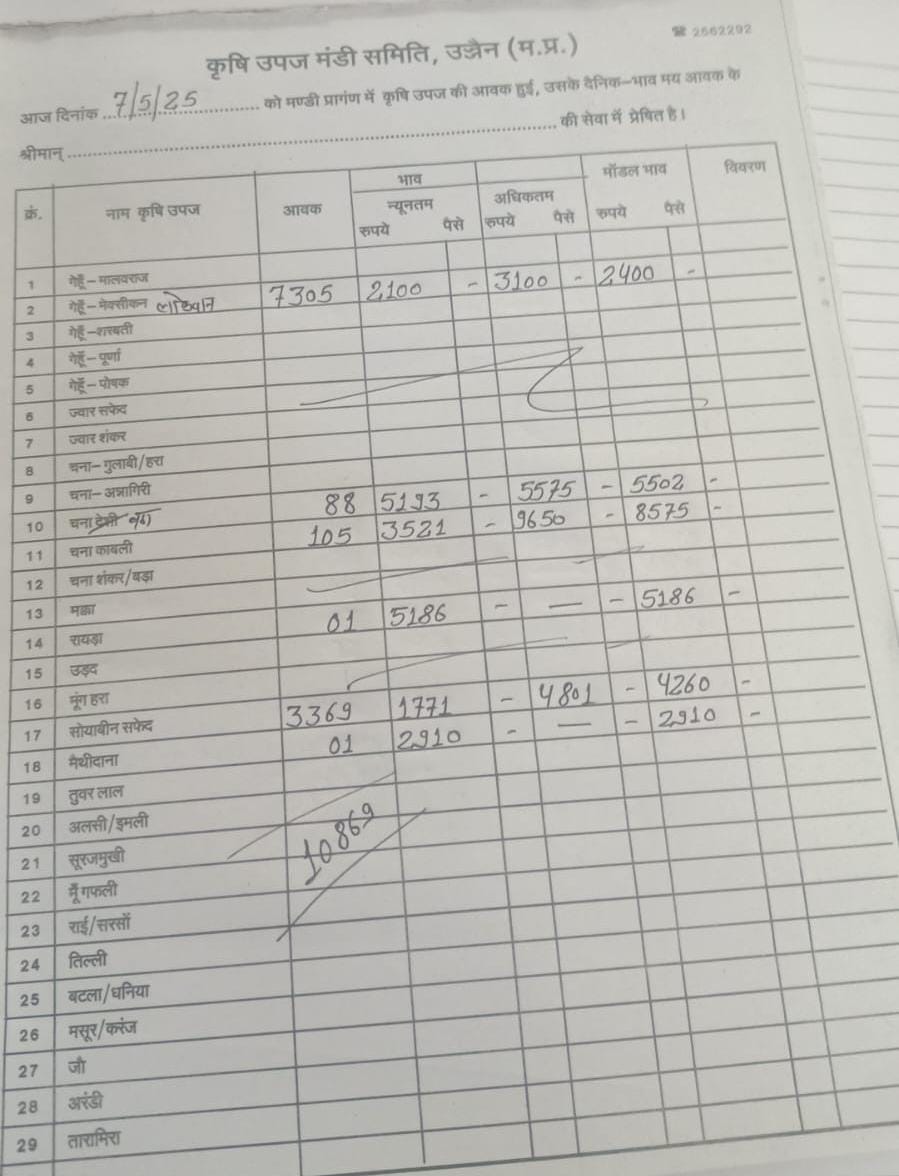 ☎ 2562292
कृषि उपज मंडी समिति, उज्जैन (म.प्र.)
आज दिनांक 7/5/25 को मण्डी प्रागंण में कृषि उपज की आवक हुई, उसके दैनिक-भाव मय आवक के
श्रीमान् की सेवा में प्रेषित है।
क्रं. नाम कृषि उपज आवक भाव मॉडल भाव विवरण
न्यूनतम अधिकतम
रुपये पैसे रुपये पैसे रुपये पैसे
1 गेहूँ-मालवराज
2 गेहूँ-मेक्सीकन लोकवान 7305 2100 - 3100 - 2400 -
3 गेहूँ-शरबती
4 गेहूँ-पूर्णा
5 गेहूँ-पोषक
6 ज्वार सफेद
7 ज्वार शंकर
8 चना-गुलाबी/हरा
9 चना-अन्नागिरी 88 5193 - 5575 - 5502 -
10 चना देशी 105 3521 - 9650 - 8575 -
11 चना काबली
12 चना शंकर/बड़ा
13 मक्का 01 5186 - — - 5186 -
14 रायड़ा
15 उड़द
16 मूंग हरा 3369 1771 - 4801 - 4260 -
17 सोयाबीन सफेद 01 2910 - — - 2910 -
18 मैथीदाना
19 तुवर लाल
20 अलसी/इमली
10869
21 सूरजमुखी
22 मूँगफली
23 राई/सरसों
24 तिल्ली
25 बटला/धनिया
26 मसूर/करंज
27 जौ
28 अरंडी
29 तारामिरा